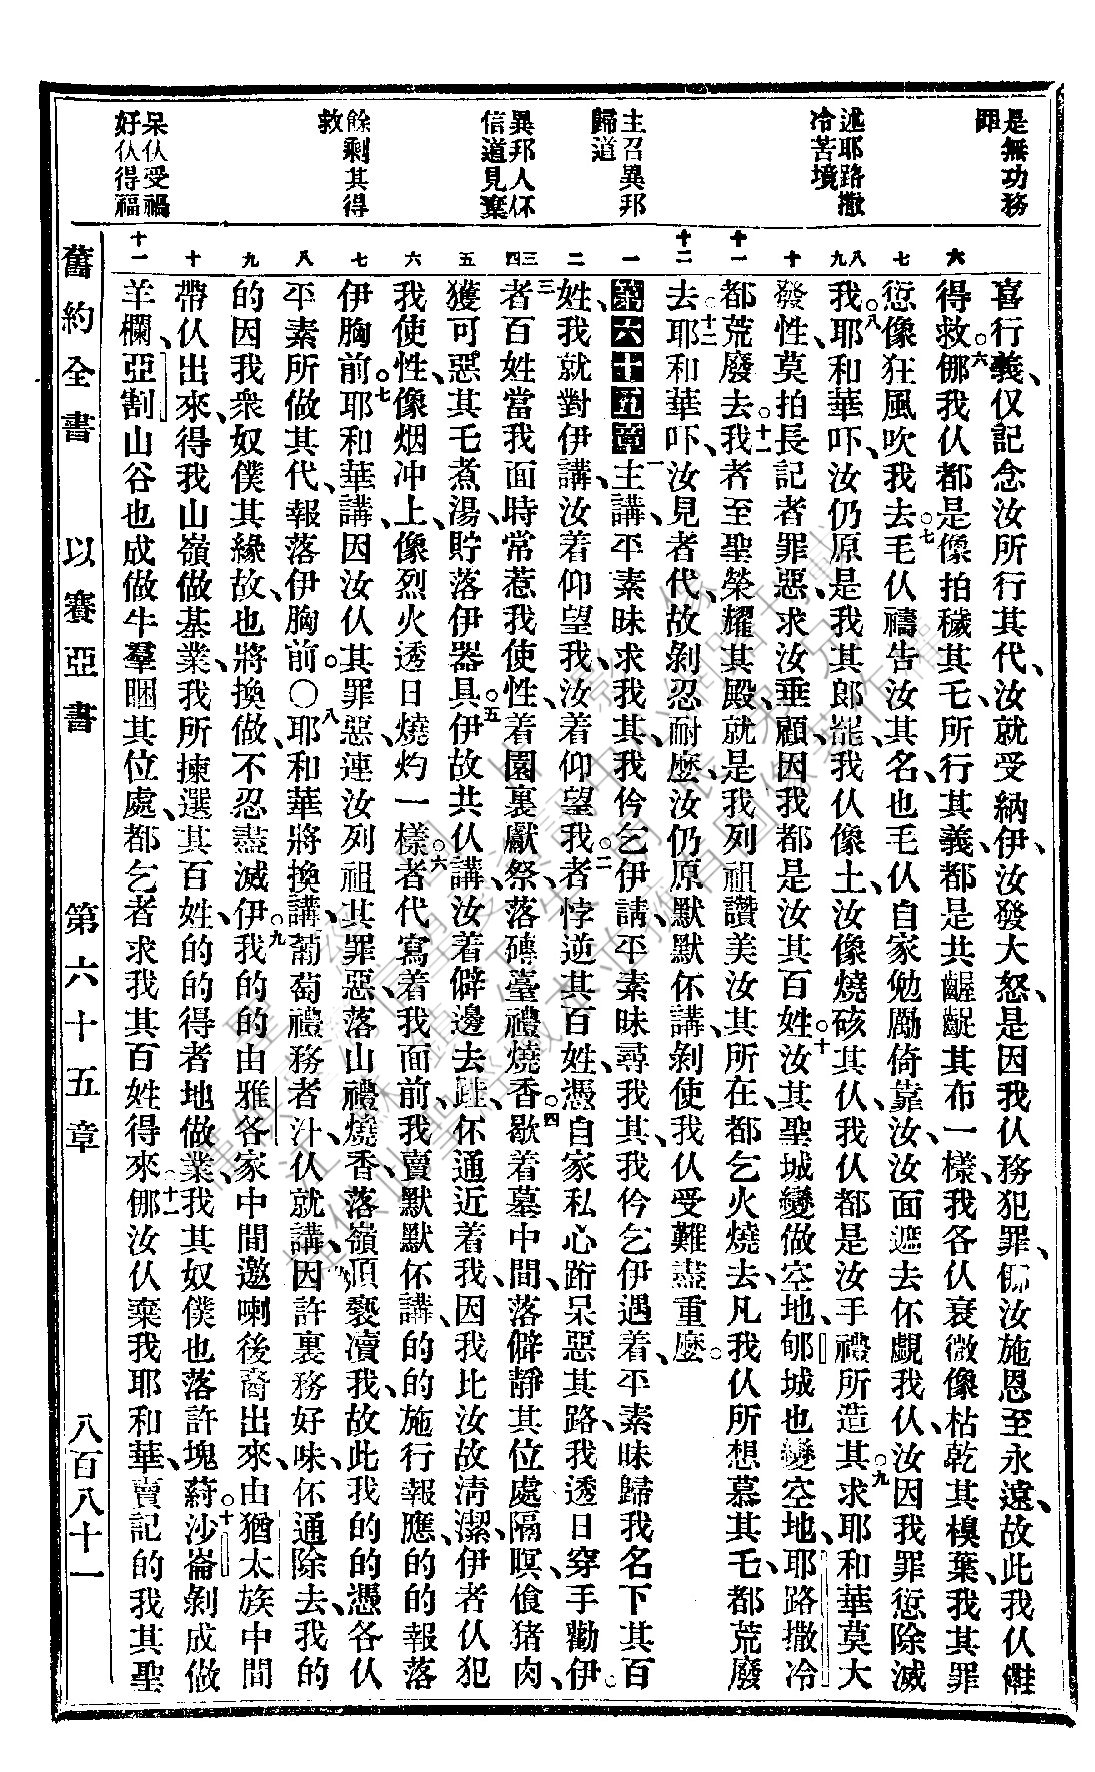 是無功務
罪
述耶路撒
冷苦境
主召異邦
歸道
異邦人伓
信道見棄
餘剩其得
救
呆仸受禍
好仸得福
六
七
八九
十
十一
十二
一
二
三四
五
六
七
八
九
十
十一
喜行義、仅記念汝所行其代、汝就受納伊、汝發大怒、是因我仸務犯罪、㑚汝施恩至永遠、故此我仸儺
得救。六㑚我仸都是像拍穢其乇、所行其義、都是共齷齪其布一樣、我各仸衰微像枯乾其模葉、我其罪
愆像狂風吹我去。七毛仸禱告汝其名、也毛仸自家勉勵倚靠汝、汝面遮去伓覷我仸、汝因我罪愆除滅
我。八耶和華吓、汝仍原是我其郎罷、我仸像土、汝像燒硋其仸、我仸都是汝手禮所造其。九求耶和華莫大
發性、莫拍長記者罪惡、求汝垂顧、因我都是汝其百姓。十汝其聖城變做空地、郇城也變空地、耶路撒冷
都荒廢去。十一我者至聖榮耀其殿、就是我列祖讚美汝其所在、都乞火燒去、凡我仸所想慕其乇、都荒廢
去。十二耶和華吓、汝見者代、故剝忍耐麽、汝仍原默默伓講、剝使我仸受難盡重麽。
第六十五章一主講、平素昧求我其、我仱乞伊請、平素昧尋我其、我仱乞伊遇着、平素昧歸我名下其百
姓、我就對伊講、汝着仰望我、汝着仰望我。二者悖逆其百姓、憑自家私心、跻呆惡其路、我透日穿手勸伊。
三者百姓當我面時常惹我使性、着園裏獻祭、落磚臺禮燒香。四歇着墓中間、落僻靜其位處隔暝、食猪肉、
獲可惡其乇煮湯、貯落伊器具。五伊故共仸講、汝着僻邊去、䟕伓通近着我、因我比汝故清潔、伊者仸犯
我使性、像烟冲上、像烈火透日燒灼一樣。六者代寫着我面前、我賣默默伓講、的的施行報應、的的報落
伊胸前。七耶和華講、因汝仸其罪惡、連汝列祖其罪惡、落山禮燒香、落嶺頂褻瀆我、故此我的的憑各仸
平素所做其代、報落伊胸前。〇八耶和華將換講、葡萄禮務者汁、仸就講、因許裏務好味、伓通除去、我的
的因我衆奴僕其緣故、也將換做、不忍盡滅伊。九我的的由雅各家中間邀喇後裔出來、由猶太族中間
帶仸出來、得我山嶺做基業、我所揀選其百姓、的的得者地做業、我其奴僕也落許塊㕑。十沙崙剝成做
羊欄、亞割山谷也成做牛羣睏其位處、都乞者求我其百姓得來。十一㑚汝仸棄我耶和華、賣記的我其聖
舊約全書　以賽亞書　第六十五章　八百八十一